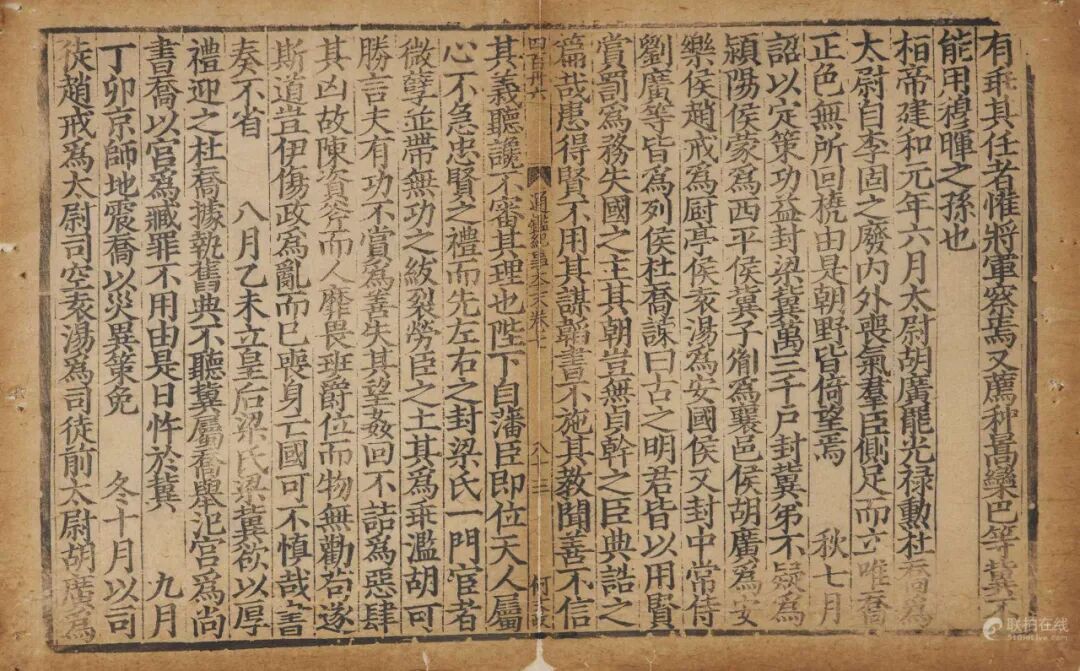 有乖其任者惟將軍察焉又薦种暠欒巴等冀不
能用穆暉之孫也
桓帝建和元年六月太尉胡廣罷光祿勳杜喬為
太尉自李固之廢内外喪氣羣臣側足而立唯喬
正色無所回橈由是朝野皆倚望焉　秋七月
詔以定策功益封梁冀萬三千戸封冀弟不疑為
潁陽侯蒙為西平侯冀子胤為襄邑侯胡廣為安
樂侯趙戒為厨亭侯袁湯為安國侯又封中常侍
劉廣等皆為列侯杜喬諫曰古之明君皆以用賢
賞罰為務失國之主其朝豈無貞幹之臣典誥之
篇哉患得賢不用其謀韜書不施其教聞善不信
四百卅六
通鑑紀事本末卷七
八十三
何
其義聽讒不審其理也陛下自藩臣即位天人屬
心不急忠賢之禮而先左右之封梁氏一門宦者
微孽並帶無功之紱裂勞臣之土其為乖濫胡可
勝言夫有功不賞為善失其望姦回不詰為惡肆
其凶故陳資斧而人靡畏班爵位而物無勸苟遂
斯道豈伊傷政為亂而已喪身亡國可不慎哉書
奏不省　八月乙未立皇后梁氏梁冀欲以厚
禮迎之杜喬據執舊典不聽冀屬喬舉氾宮為尚
書喬以宮為臧罪不用由是日忤於冀　九月
丁卯京師地震喬以災異策免　冬十月以司
徒趙戒為太尉司空袁湯為司徒前太尉胡廣為
联拍在线